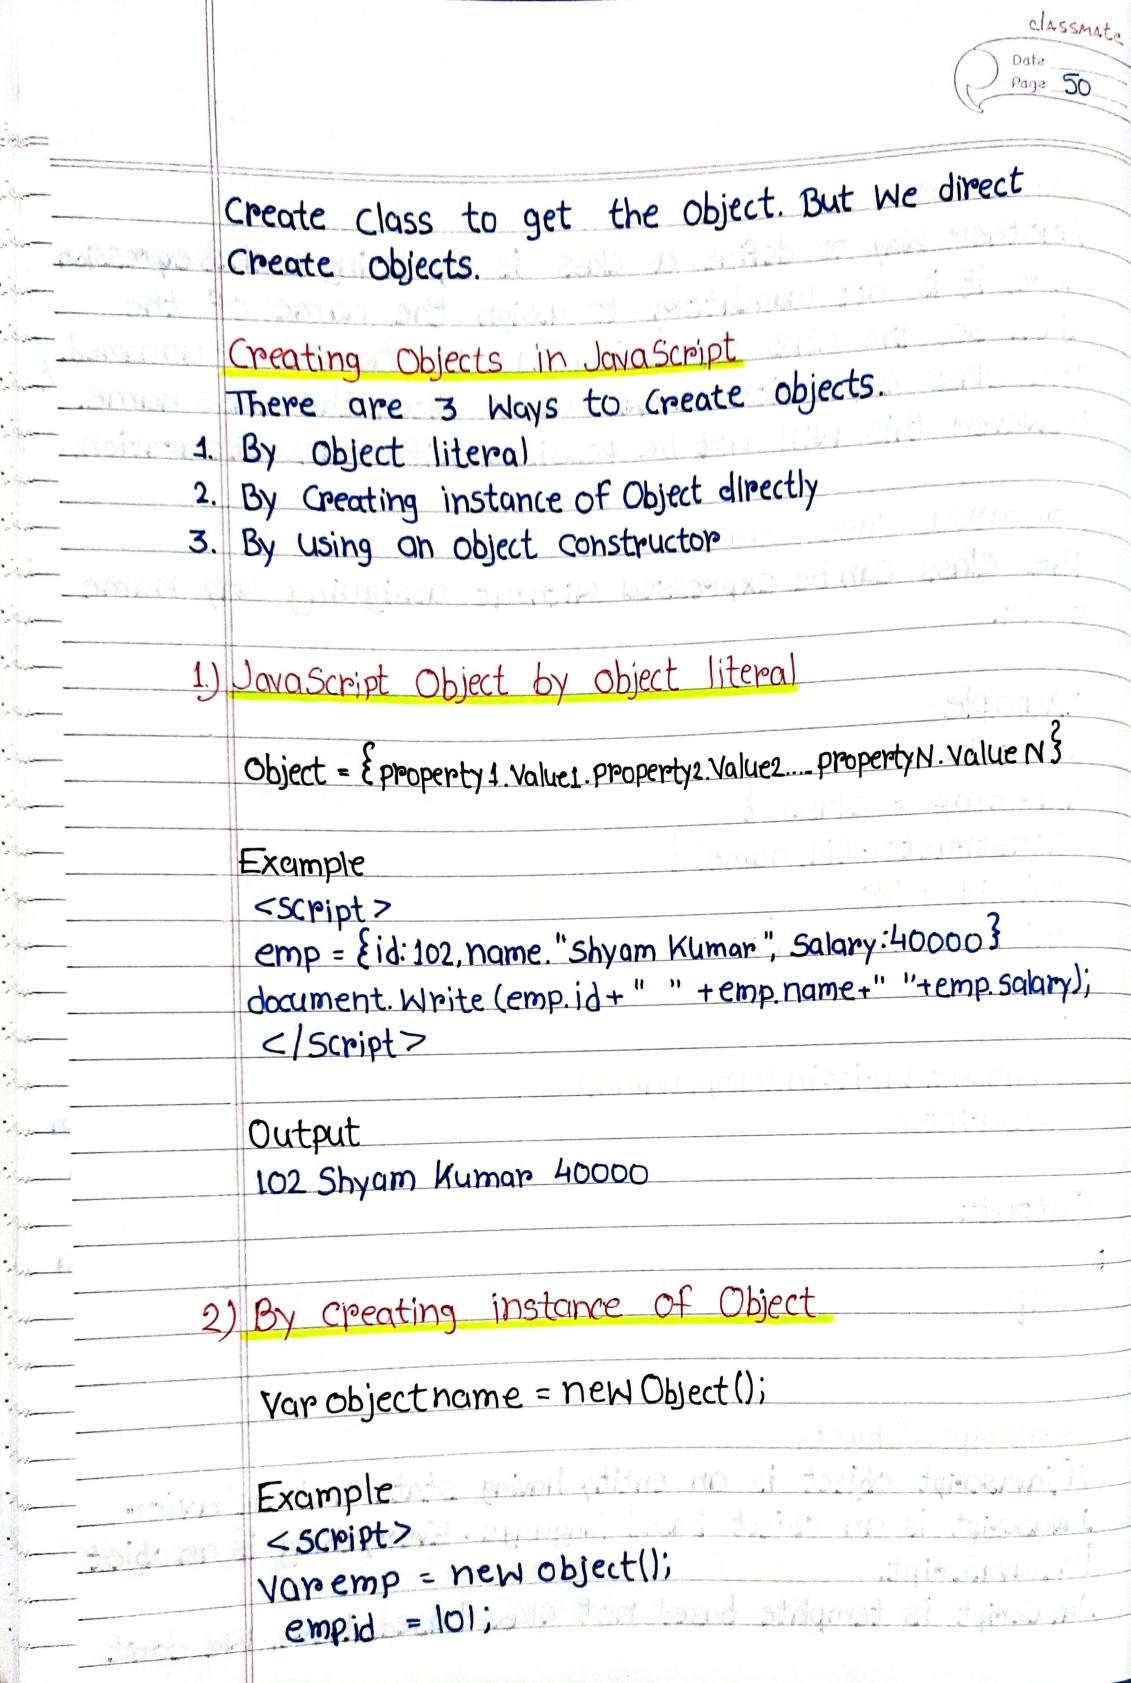 classmate
Date
Page 50
Create Class to get the object. But We direct
Create objects.
Creating Objects in JavaScript
There are 3 Ways to Create objects.
1. By Object literal
2. By Creating instance of Object directly
3. By using an object constructor
1.) JavaScript Object by object literal
Object = {property1.Value1.property2.Value2....propertyN.ValueN}
Example
<script>
emp = {id:102,name."Shyam Kumar", Salary:40000}
document.Write(emp.id+" " +emp.name+" "+emp.salary);
</Script>
Output
102 Shyam Kumar 40000
2) By creating instance of Object
Var objectname = new Object();
Example
<script>
var emp = new object();
emp.id = 101;